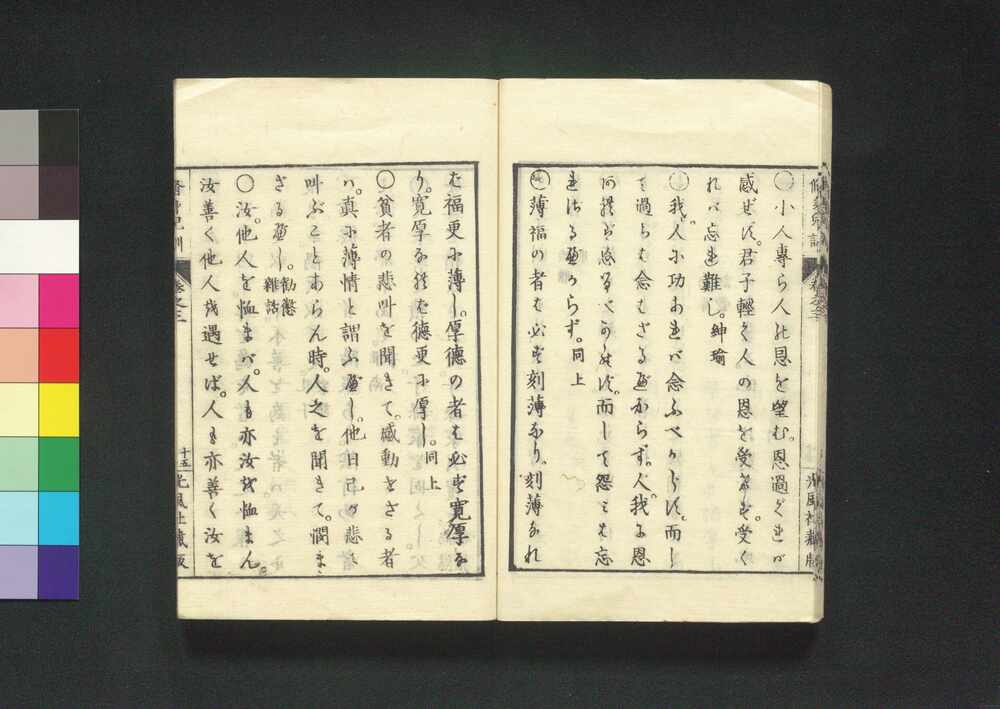 ○小人專ら人の恩を望む。恩過ぐれば
感ぜず。君子輕く人の恩を受けず受く
れバ忘れ難し。紳瑜
○我。人に功あれバ念ふべからず。而し
て過ちも念もざる可からず。人。我に恩
あれば忘るべからず。而して怨ミも忘
れざる可からず。同上
○薄福の者も必ず刻薄なり。刻薄なれ
ば福更に薄し。厚德の者も必ず寛厚な
り。寛厚なれば德更に厚し。同上
○貧者の悲叫を聞きて。感動せざる者
ハ。真に薄情と謂ふ可し。他日己が悲く
叫ぶことあらん時。人之を聞きて。憫ま
ざる可し。勸懲雜話
○汝。他人を恤まバ。人も亦汝を恤まん。
汝善く他人を遇せば。人も亦善く汝を
卷之二
十五
光風社藏版